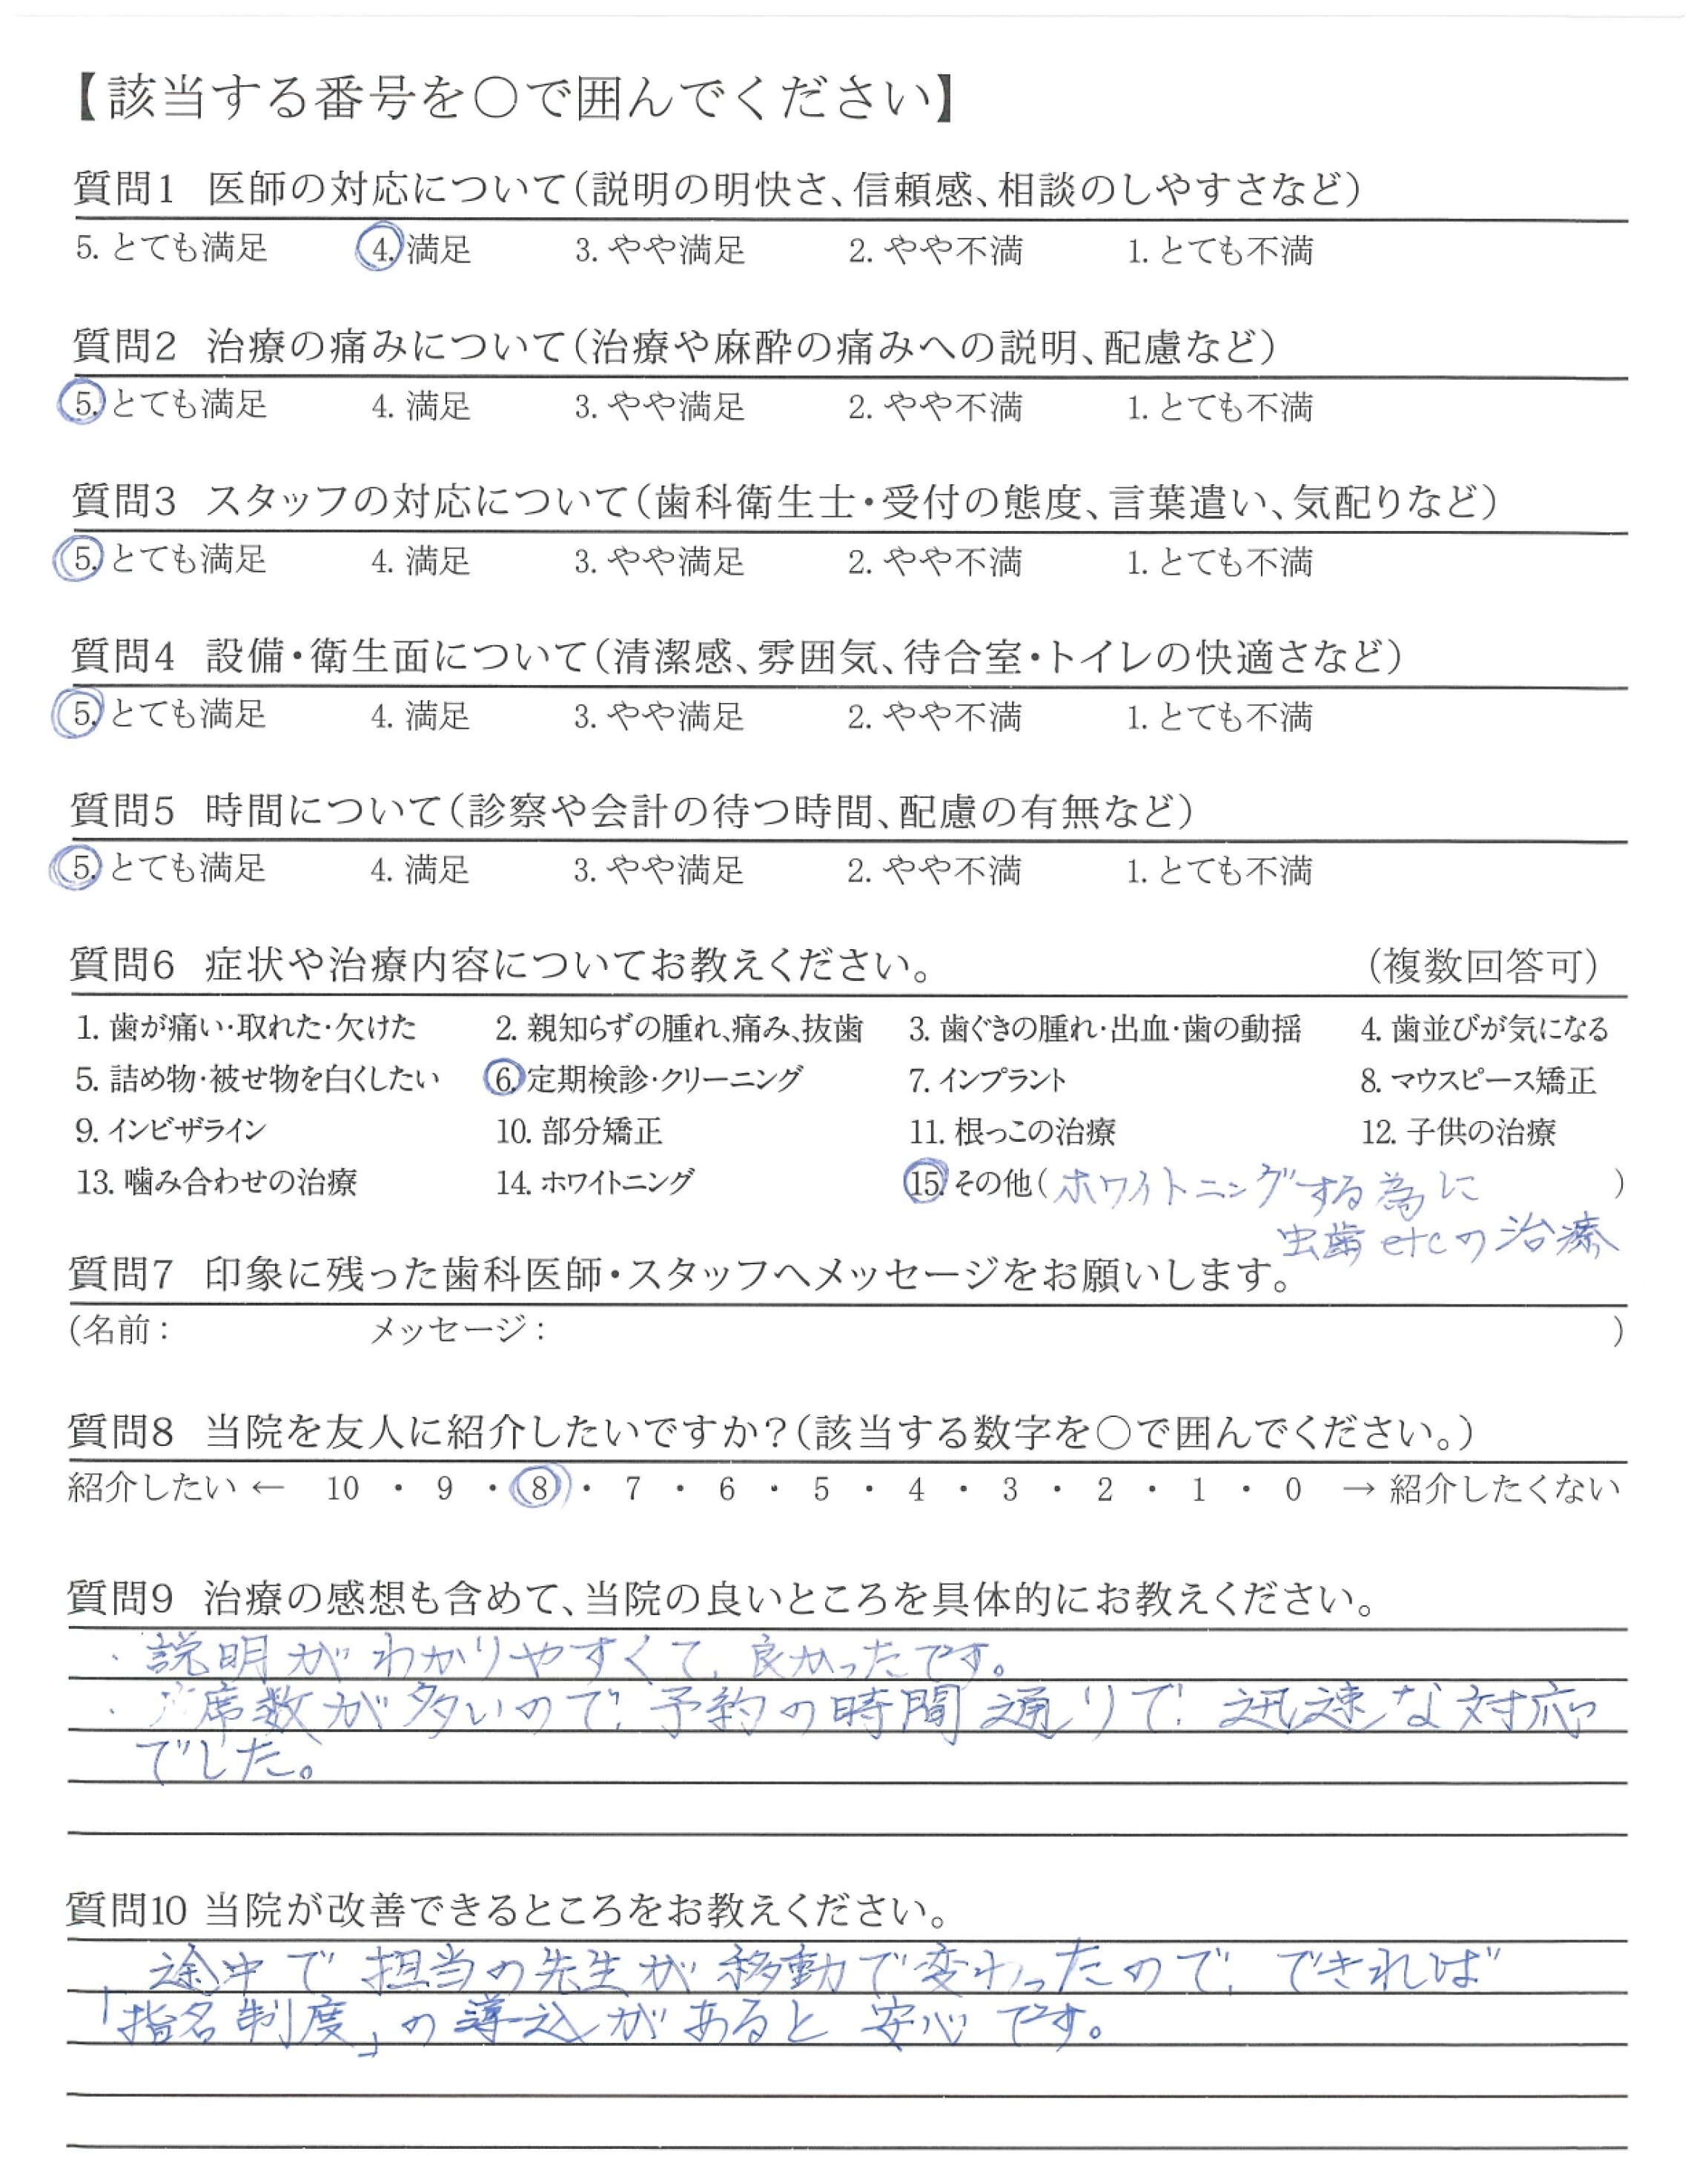 【該当する番号を○で囲んでください】
質問1 医師の対応について(説明の明快さ、信頼感、相談のしやすさなど)
5. とても満足 4. 満足 3. やや満足 2. やや不満 1. とても不満
質問2 治療の痛みについて(治療や麻酔の痛みへの説明、配慮など)
5. とても満足 4. 満足 3. やや満足 2. やや不満 1. とても不満
質問3 スタッフの対応について(歯科衛生士・受付の態度、言葉遣い、気配りなど)
5. とても満足 4. 満足 3. やや満足 2. やや不満 1. とても不満
質問4 設備・衛生面について(清潔感、雰囲気、待合室・トイレの快適さなど)
5. とても満足 4. 満足 3. やや満足 2. やや不満 1. とても不満
質問5 時間について(診察や会計の待つ時間、配慮の有無など)
5. とても満足 4. 満足 3. やや満足 2. やや不満 1. とても不満
質問6 症状や治療内容についてお教えください。 (複数回答可)
1. 歯が痛い・取れた・欠けた 2. 親知らずの腫れ、痛み、抜歯 3. 歯ぐきの腫れ・出血・歯の動揺 4. 歯並びが気になる
5. 詰め物・被せ物を白くしたい 6. 定期検診・クリーニング 7. インプラント 8. マウスピース矯正
9. インビザライン 10. 部分矯正 11. 根っこの治療 12. 子供の治療
13. 噛み合わせの治療 14. ホワイトニング 15. その他(ホワイトニングする為に )
虫歯etcの治療
質問7 印象に残った歯科医師・スタッフへメッセージをお願いします。
(名前: メッセージ: )
質問8 当院を友人に紹介したいですか?(該当する数字を○で囲んでください。)
紹介したい ← 10 ・ 9 ・ 8 ・ 7 ・ 6 ・ 5 ・ 4 ・ 3 ・ 2 ・ 1 ・ 0 → 紹介したくない
質問9 治療の感想も含めて、当院の良いところを具体的にお教えください。
・説明がわかりやすくて、良かったです。
・席数が多いので、予約の時間通りで、迅速な対応
でした。
質問10 当院が改善できるところをお教えください。
途中で担当の先生が移動で変わったので、できれば
「指名制度」の導入があると安心です。